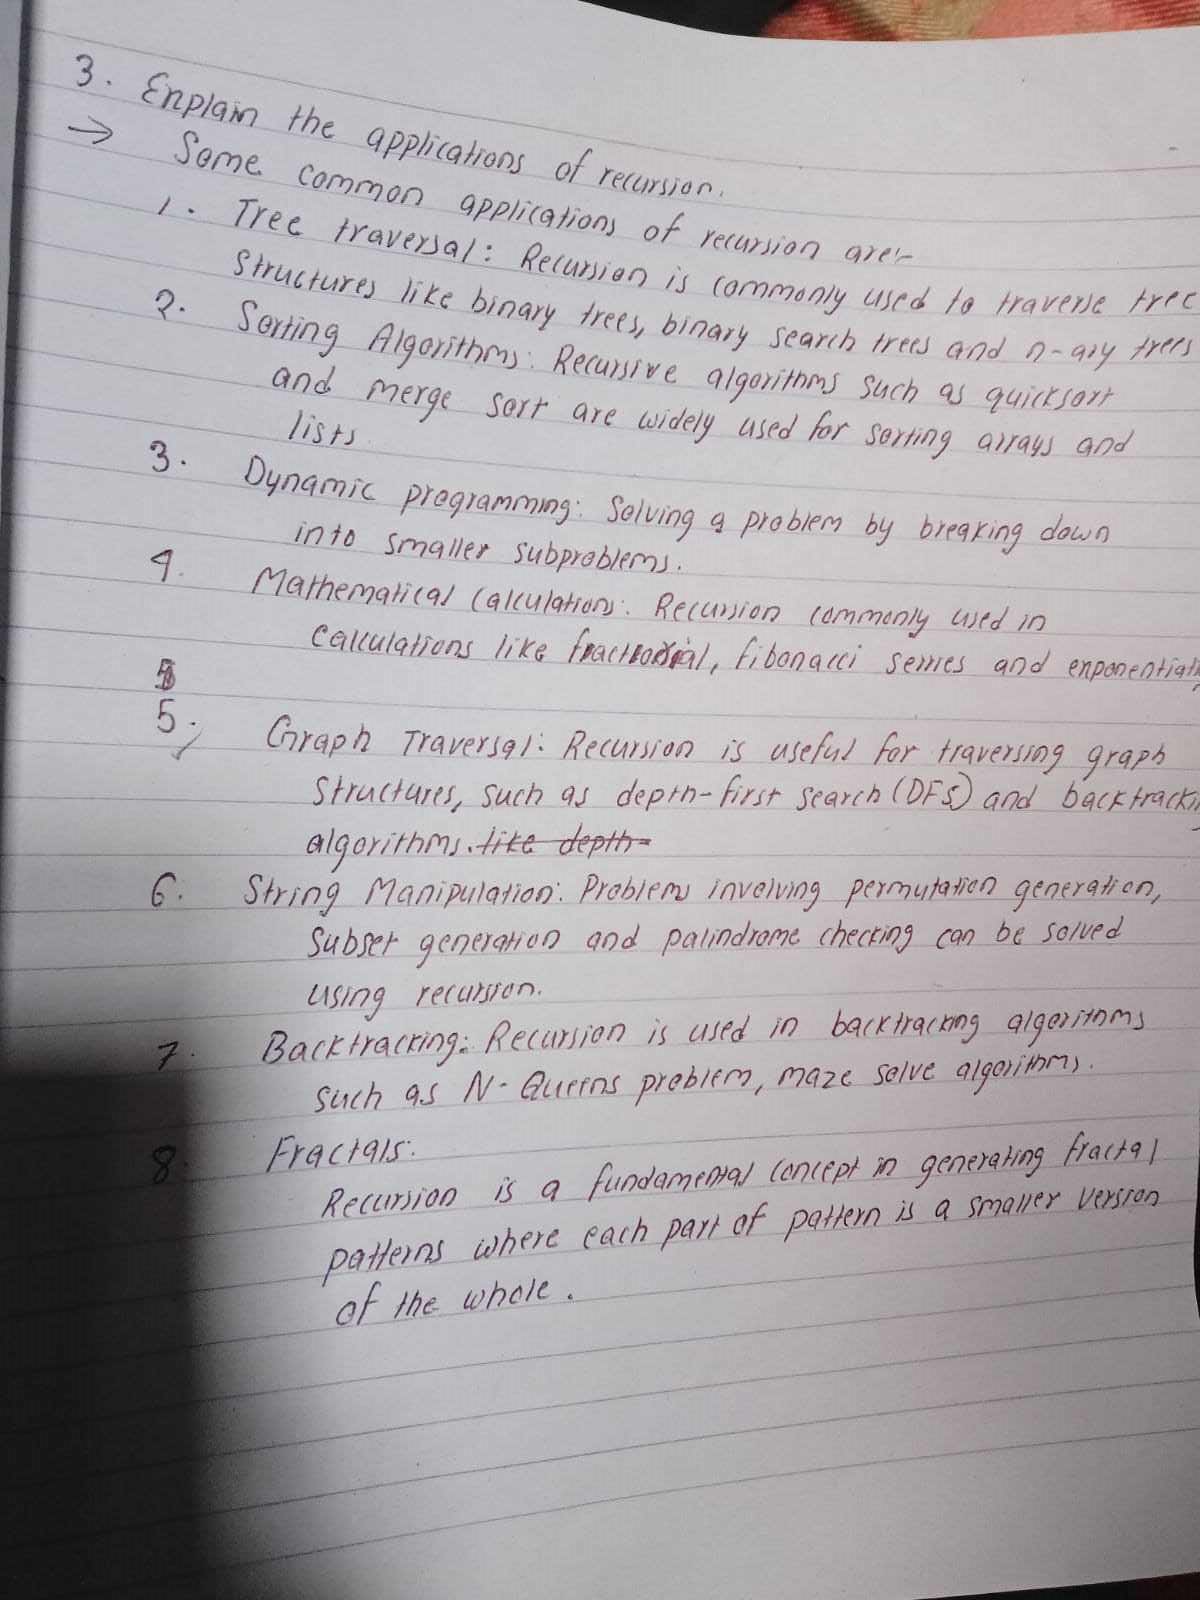 3. Explain the applications of recursion.
→ Some common applications of recursion are:-
1. Tree traversal: Recursion is commonly used to traverse tree
structures like binary trees, binary search trees and n-ary trees
2. Sorting Algorithms: Recursive algorithms such as quicksort
and merge sort are widely used for sorting arrays and
lists.
3. Dynamic programming: Solving a problem by breaking down
into smaller subproblems.
4. Mathematical Calculations: Recursion commonly used in
calculations like fractorial, fibonacci series and
5.
Graph Traversal: Recursion is useful for traversing graph
structures, such as depth-first search (DFS) and
algorithms. like depth-
6. String Manipulation: Problems involving permutation generation,
subset generation and palindrome checking can be solved
using recursion.
7. Backtracking: Recursion is used in backtracking algorithms
such as N-Queens problem, maze solve algorithms.
8. Fractals:
Recursion is a fundamental concept in generating fractal
patterns where each part of pattern is a smaller version
of the whole.